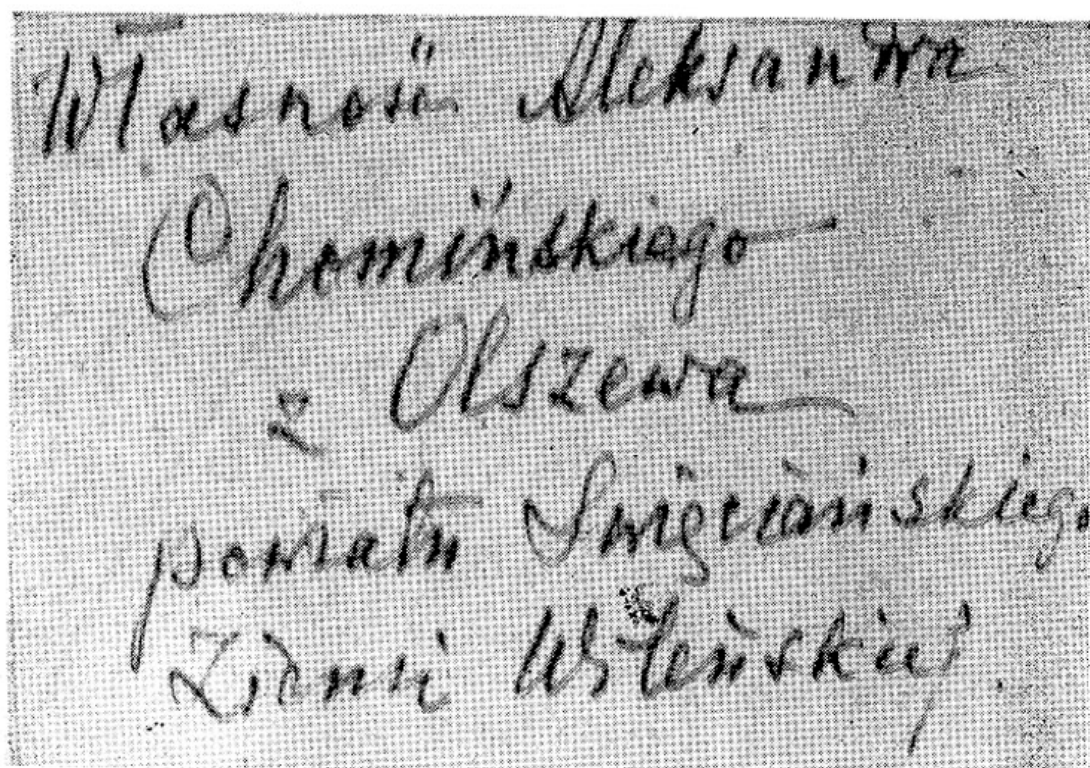 Własność Aleksandra
Chomińskiego
z Olszewa
powiatu Święciańskiego
Ziemi Wileńskiej.